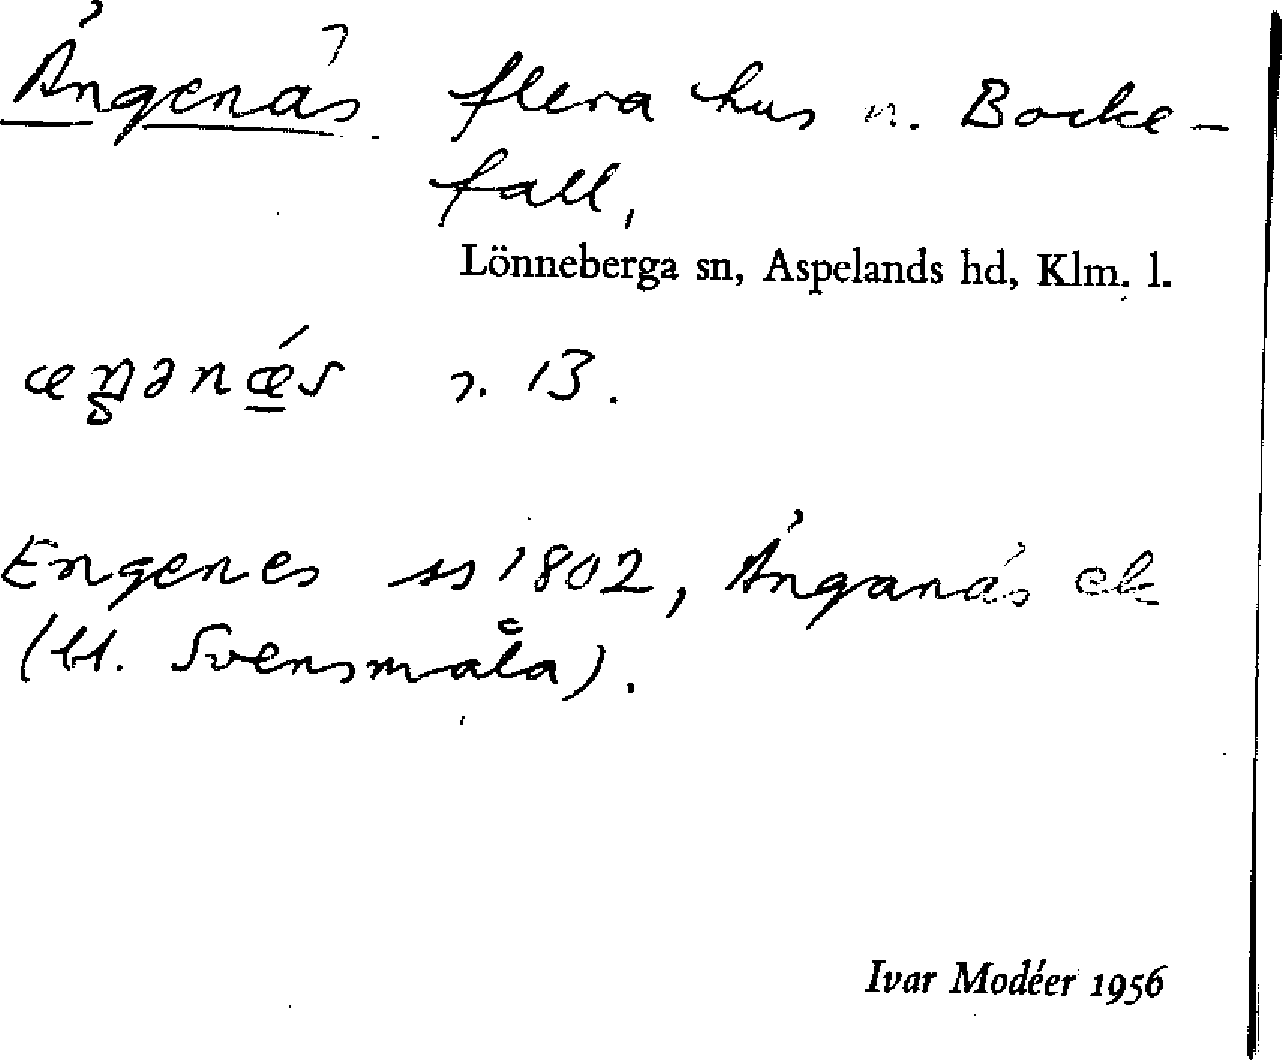 Ängenäs flera hus n. Bocke-
fall,
Lönneberga sn, Aspelands hd, Klm. l.
13.
Engenes ss 1802, Änganäs ek
(bl. Svensmåla).
Ivar Modéer 1956